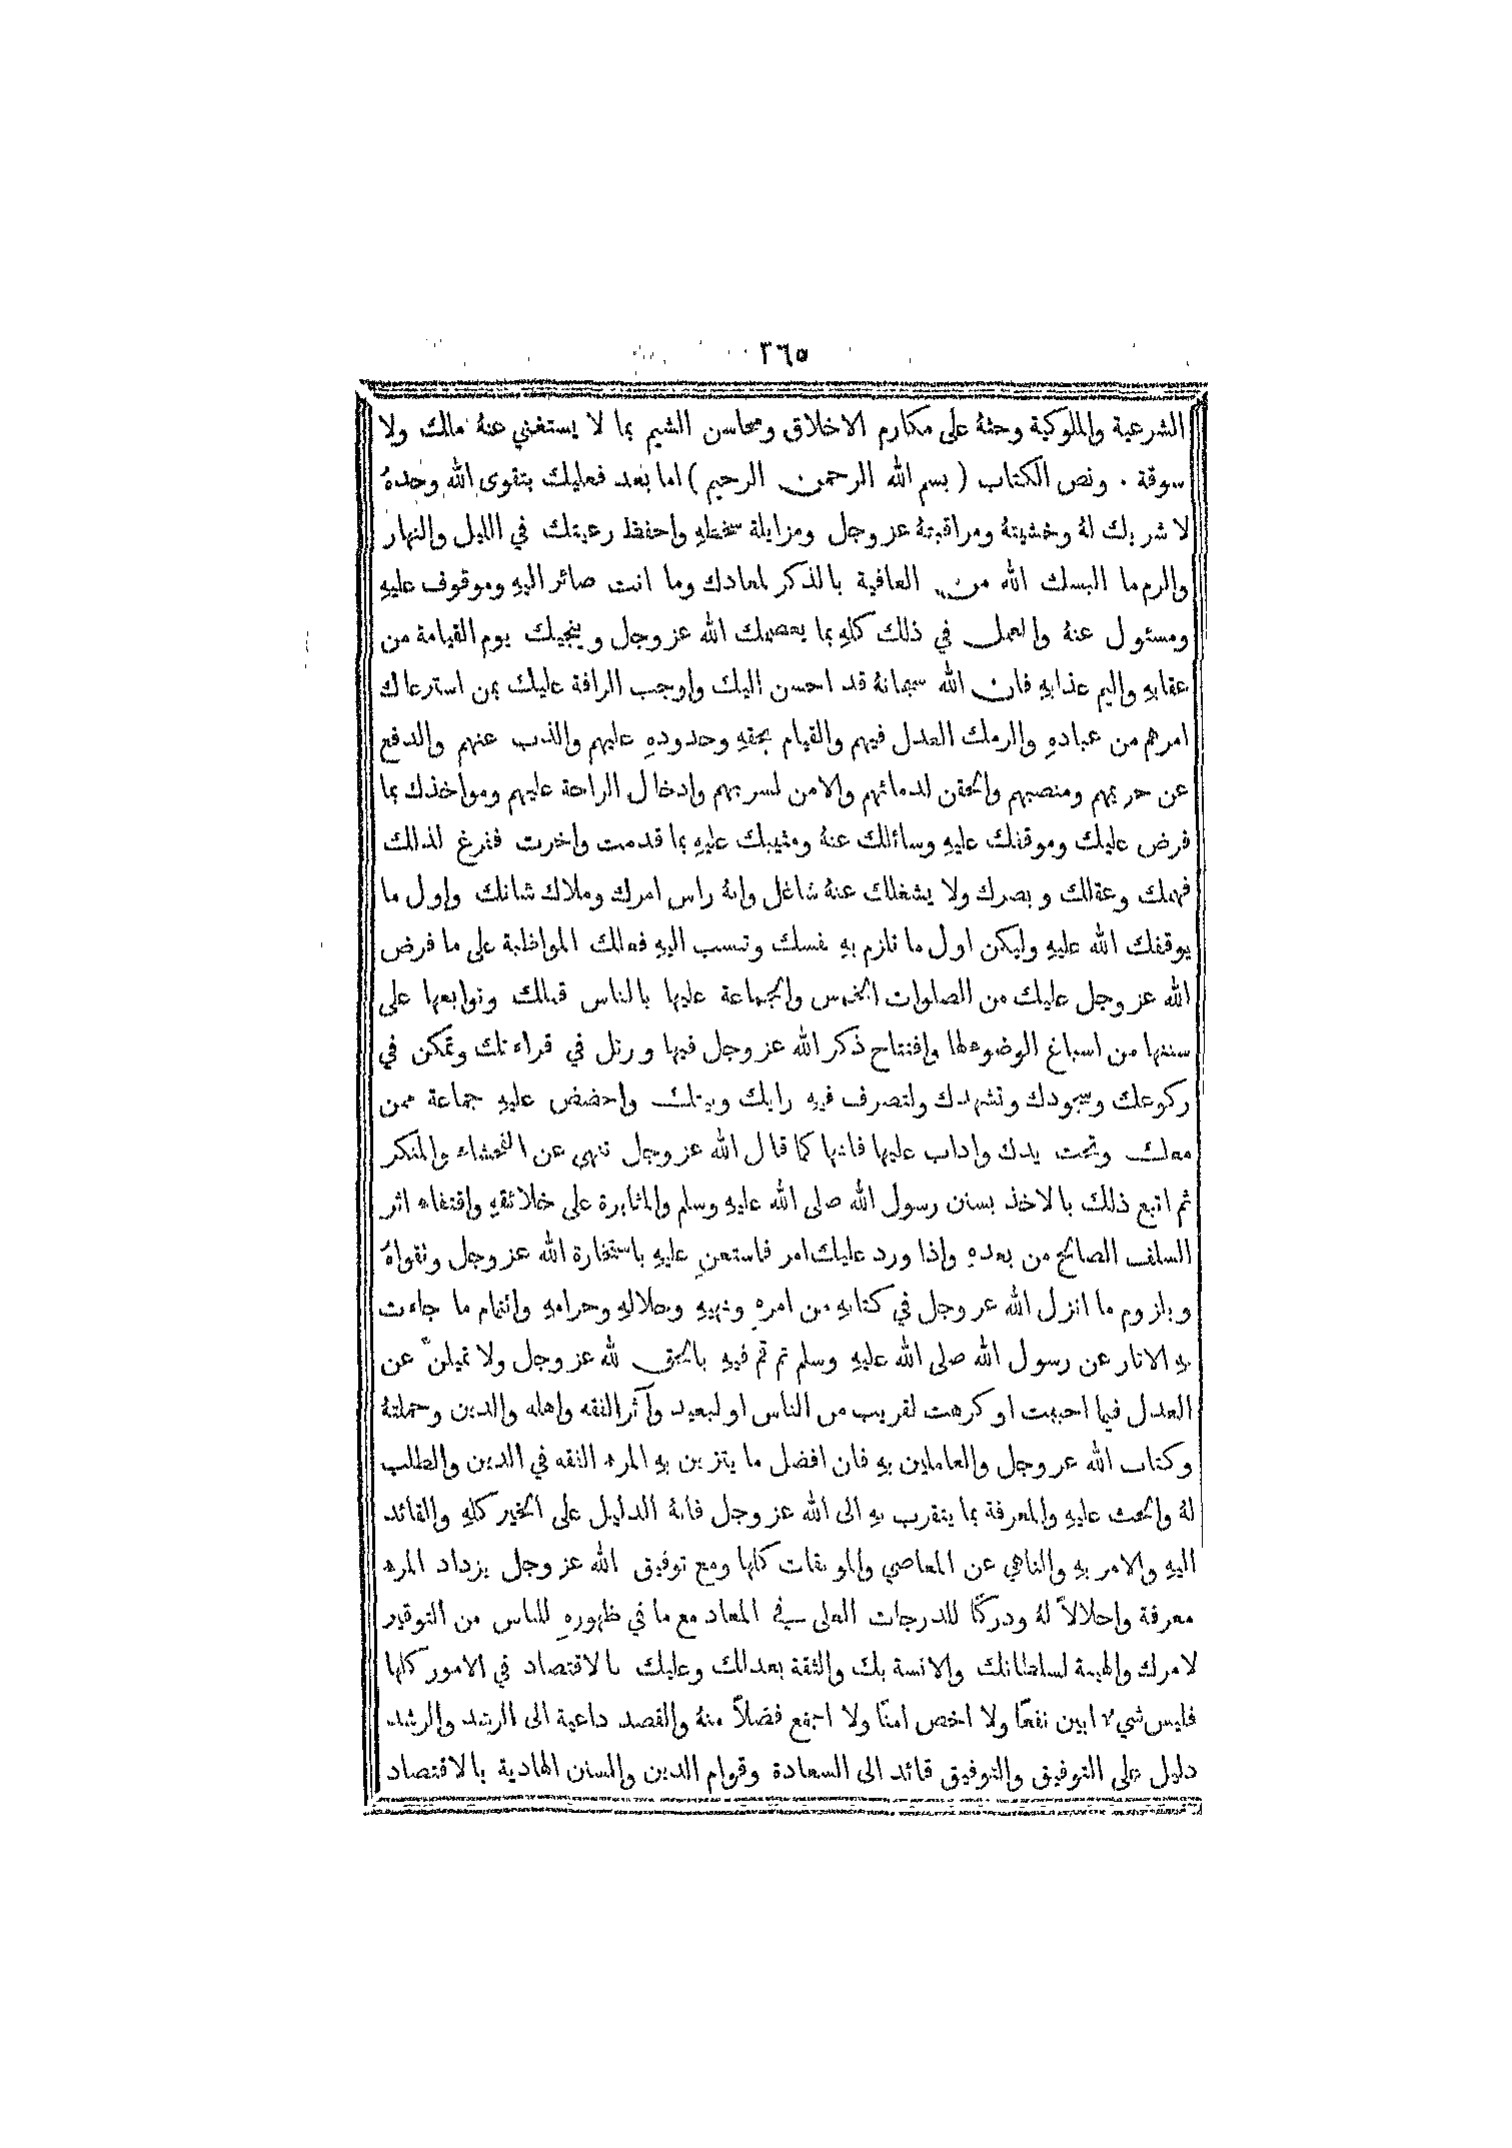 ٣٦٥
الشرعية والملوكية وحثهُ على مكارم الاخلاق ومحاسن الشيم بما لا يستغني عنهُ مالك ولا
سوقة . ونص الكتاب ( بسم الله الرحمن الرحيم ) اما بعد فعليك بتقوى الله وحدهُ
لا شريك لهُ وخشيتهُ ومراقبتهُ عز وجل ومزايلة سخطهِ واحفظ رعيتك في الليل والنهار
والزم ما البسك الله من العافية بالذكر لمعادك وما انت صائر اليهِ وموقوف عليهِ
ومسئول عنهُ والعمل في ذلك كلهِ بما يعصمك الله عز وجل وينجيك يوم القيامة من
عقابهِ واليم عذابهِ فان الله سبحانهُ قد احسن اليك واوجب الرافة عليك بمن استرعاك
امرهم من عبادهِ والزمك العدل فيهم والقيام بحقهِ وحدودهِ عليهم والذب عنهم والدفع
عن حريمهم ومنصبهم والحقن لدمائهم والامن لسربهم وادخال الراحة عليهم ومواخذك بما
فرض عليك وموقفك عليهِ وسائلك عنهُ ومثيبك عليهِ بما قدمت واخرت ففرغ لذلك
فهمك وعقلك وبصرك ولا يشغلك عنهُ شاغل وانهُ راس امرك وملاك شانك واول ما
يوقفك الله عليهِ وليكن اول ما تلزم بهِ نفسك وتنسب اليهِ فعلك المواظبة على ما فرض
الله عز وجل عليك من الصلوات الخمس والجماعة عليها بالناس قبلك وتوابعها على
سننها من اسباغ الوضوء لها وافتتاح ذكر الله عز وجل فيها ورتل في قراءتك وتمكن في
ركوعك وسجودك وتشهدك ولتصرف فيهِ رايك ونيتك واحضض عليهِ جماعة ممن
معك وتحت يدك واداب عليها فانها كما قال الله عز وجل تنهى عن الفحشاء والمنكر
ثم اتبع ذلك بالاخذ بسنن رسول الله صلى الله عليهِ وسلم والمثابرة على خلائقهِ واقتفاء اثر
السلف الصالح من بعدهِ واذا ورد عليك امر فاستعن عليهِ باستخارة الله عز وجل وتقواهُ
وبلزوم ما انزل الله عز وجل في كتابهِ من امرهِ ونهيهِ وحلالهِ وحرامهِ وائتمام ما جاءت
بهِ الاثار عن رسول الله صلى الله عليهِ وسلم ثم قم فيهِ بالحق لله عز وجل ولا تميلنَّ عن
العدل فيما احببت او كرهت لقريب من الناس او لبعيد وآثر الفقه واهله والدين وحملتهُ
وكتاب الله عز وجل والعاملين بهِ فان افضل ما يتزين بهِ المرء الفقه في الدين والطلب
لهُ والحث عليهِ والمعرفة بما يتقرب بهِ الى الله عز وجل فانهُ الدليل على الخير كلهِ والقائد
اليهِ والامر بهِ والناهي عن المعاصي والموبقات كلها ومع توفيق الله عز وجل يزداد المرء
معرفة واجلالاً لهُ ودركًا للدرجات العلى في المعاد مع ما في ظهورهِ للناس من التوقير
لامرك والهيبة لسلطانك والانسة بك والثقة بعدلك وعليك بالاقتصاد في الامور كلها
فليس شيءٌ ابين نفعًا ولا اخص امنًا ولا اجمع فضلاً منهُ والقصد داعية الى الرشد والرشد
دليل على التوفيق والتوفيق قائد الى السعادة وقوام الدين والسنن الهادية بالاقتصاد